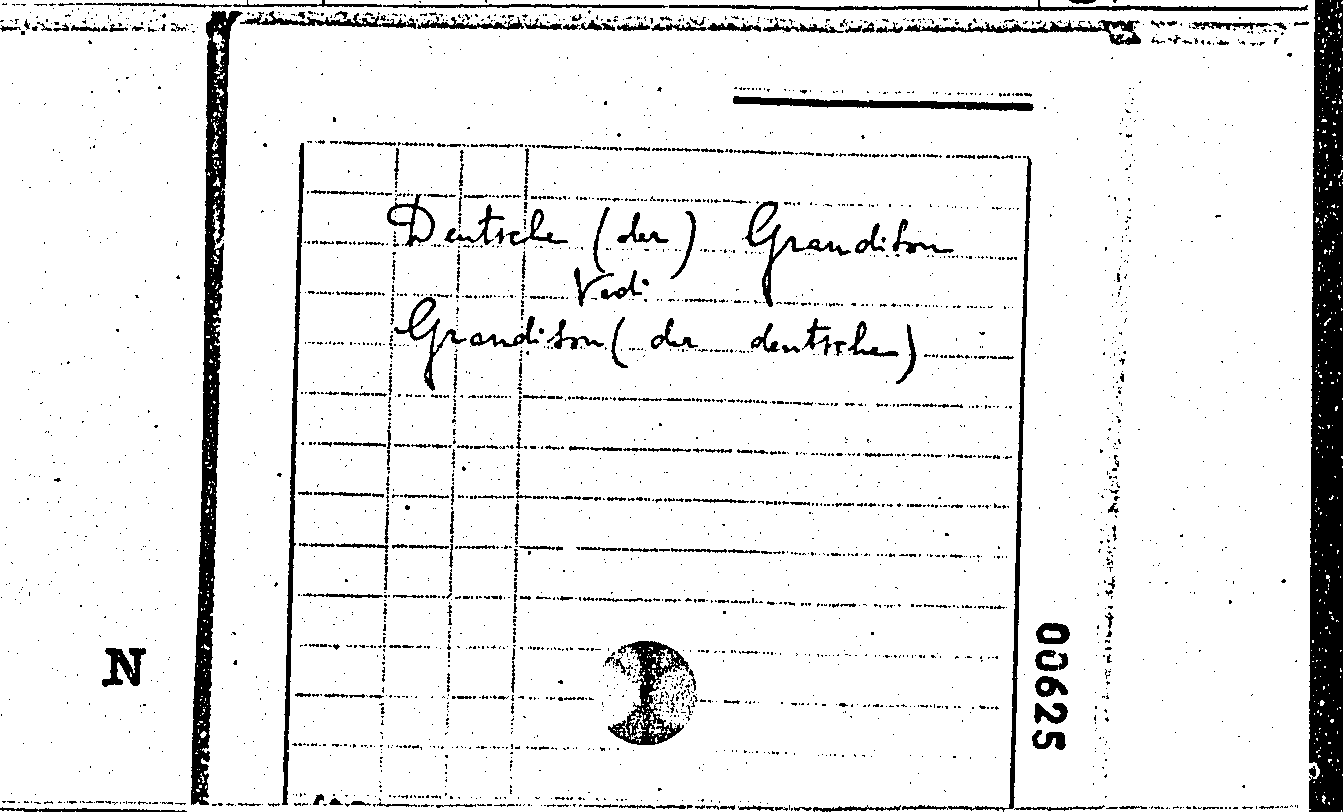 Deutsche (der) Grandison
Vedi
Grandison (der deutsche)
N
00625